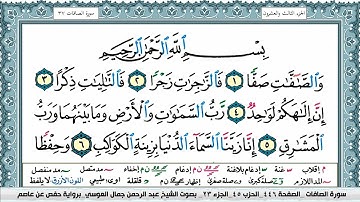 الجزء الثالث والعشرون
سورة الصافات ٣٧
بِسْمِ اللَّهِ الرَّحْمَٰنِ الرَّحِيمِ
وَالصَّافَّاتِ صَفًّا ١ فَالزَّاجِرَاتِ زَجْرًا ٢ فَالتَّالِيَاتِ ذِكْرًا ٣
إِنَّ إِلَٰهَكُمْ لَوَاحِدٌ ٤ رَبُّ السَّمَاوَاتِ وَالْأَرْضِ وَمَا بَيْنَهُمَا وَرَبُّ
الْمَشَارِقِ ٥ إِنَّا زَيَّنَّا السَّمَاءَ الدُّنْيَا بِزِينَةٍ الْكَوَاكِبِ ٦ وَحِفْظًا
سورة الصافات . الصفحة ٤٤٦ حزب ٤٥ الجزء ٢٣ . بصوت الشيخ عبد الرحمن جمال العوسي . برواية حفص عن عاصم